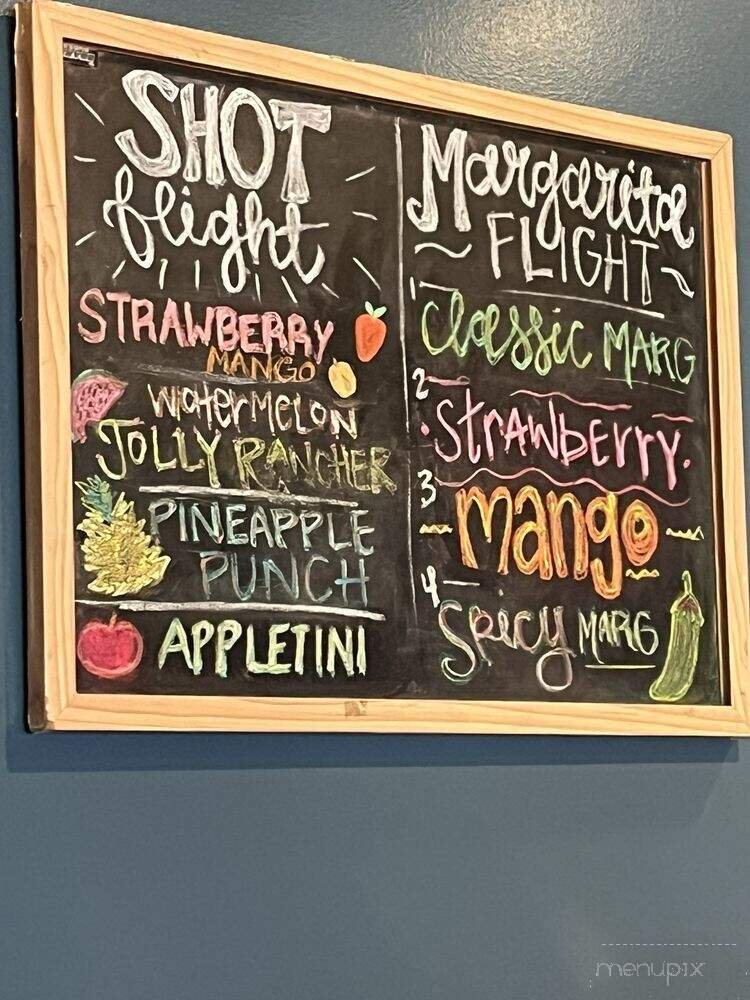 SHOT
flight
STRAWBERRY
MANGO
WATERMELON
JOLLY RANCHER
PINEAPPLE
PUNCH
APPLETINI
Margarita
FLIGHT
1
Classic MARG
2
Strawberry
3
mango
4
Spicy MARG
menupix